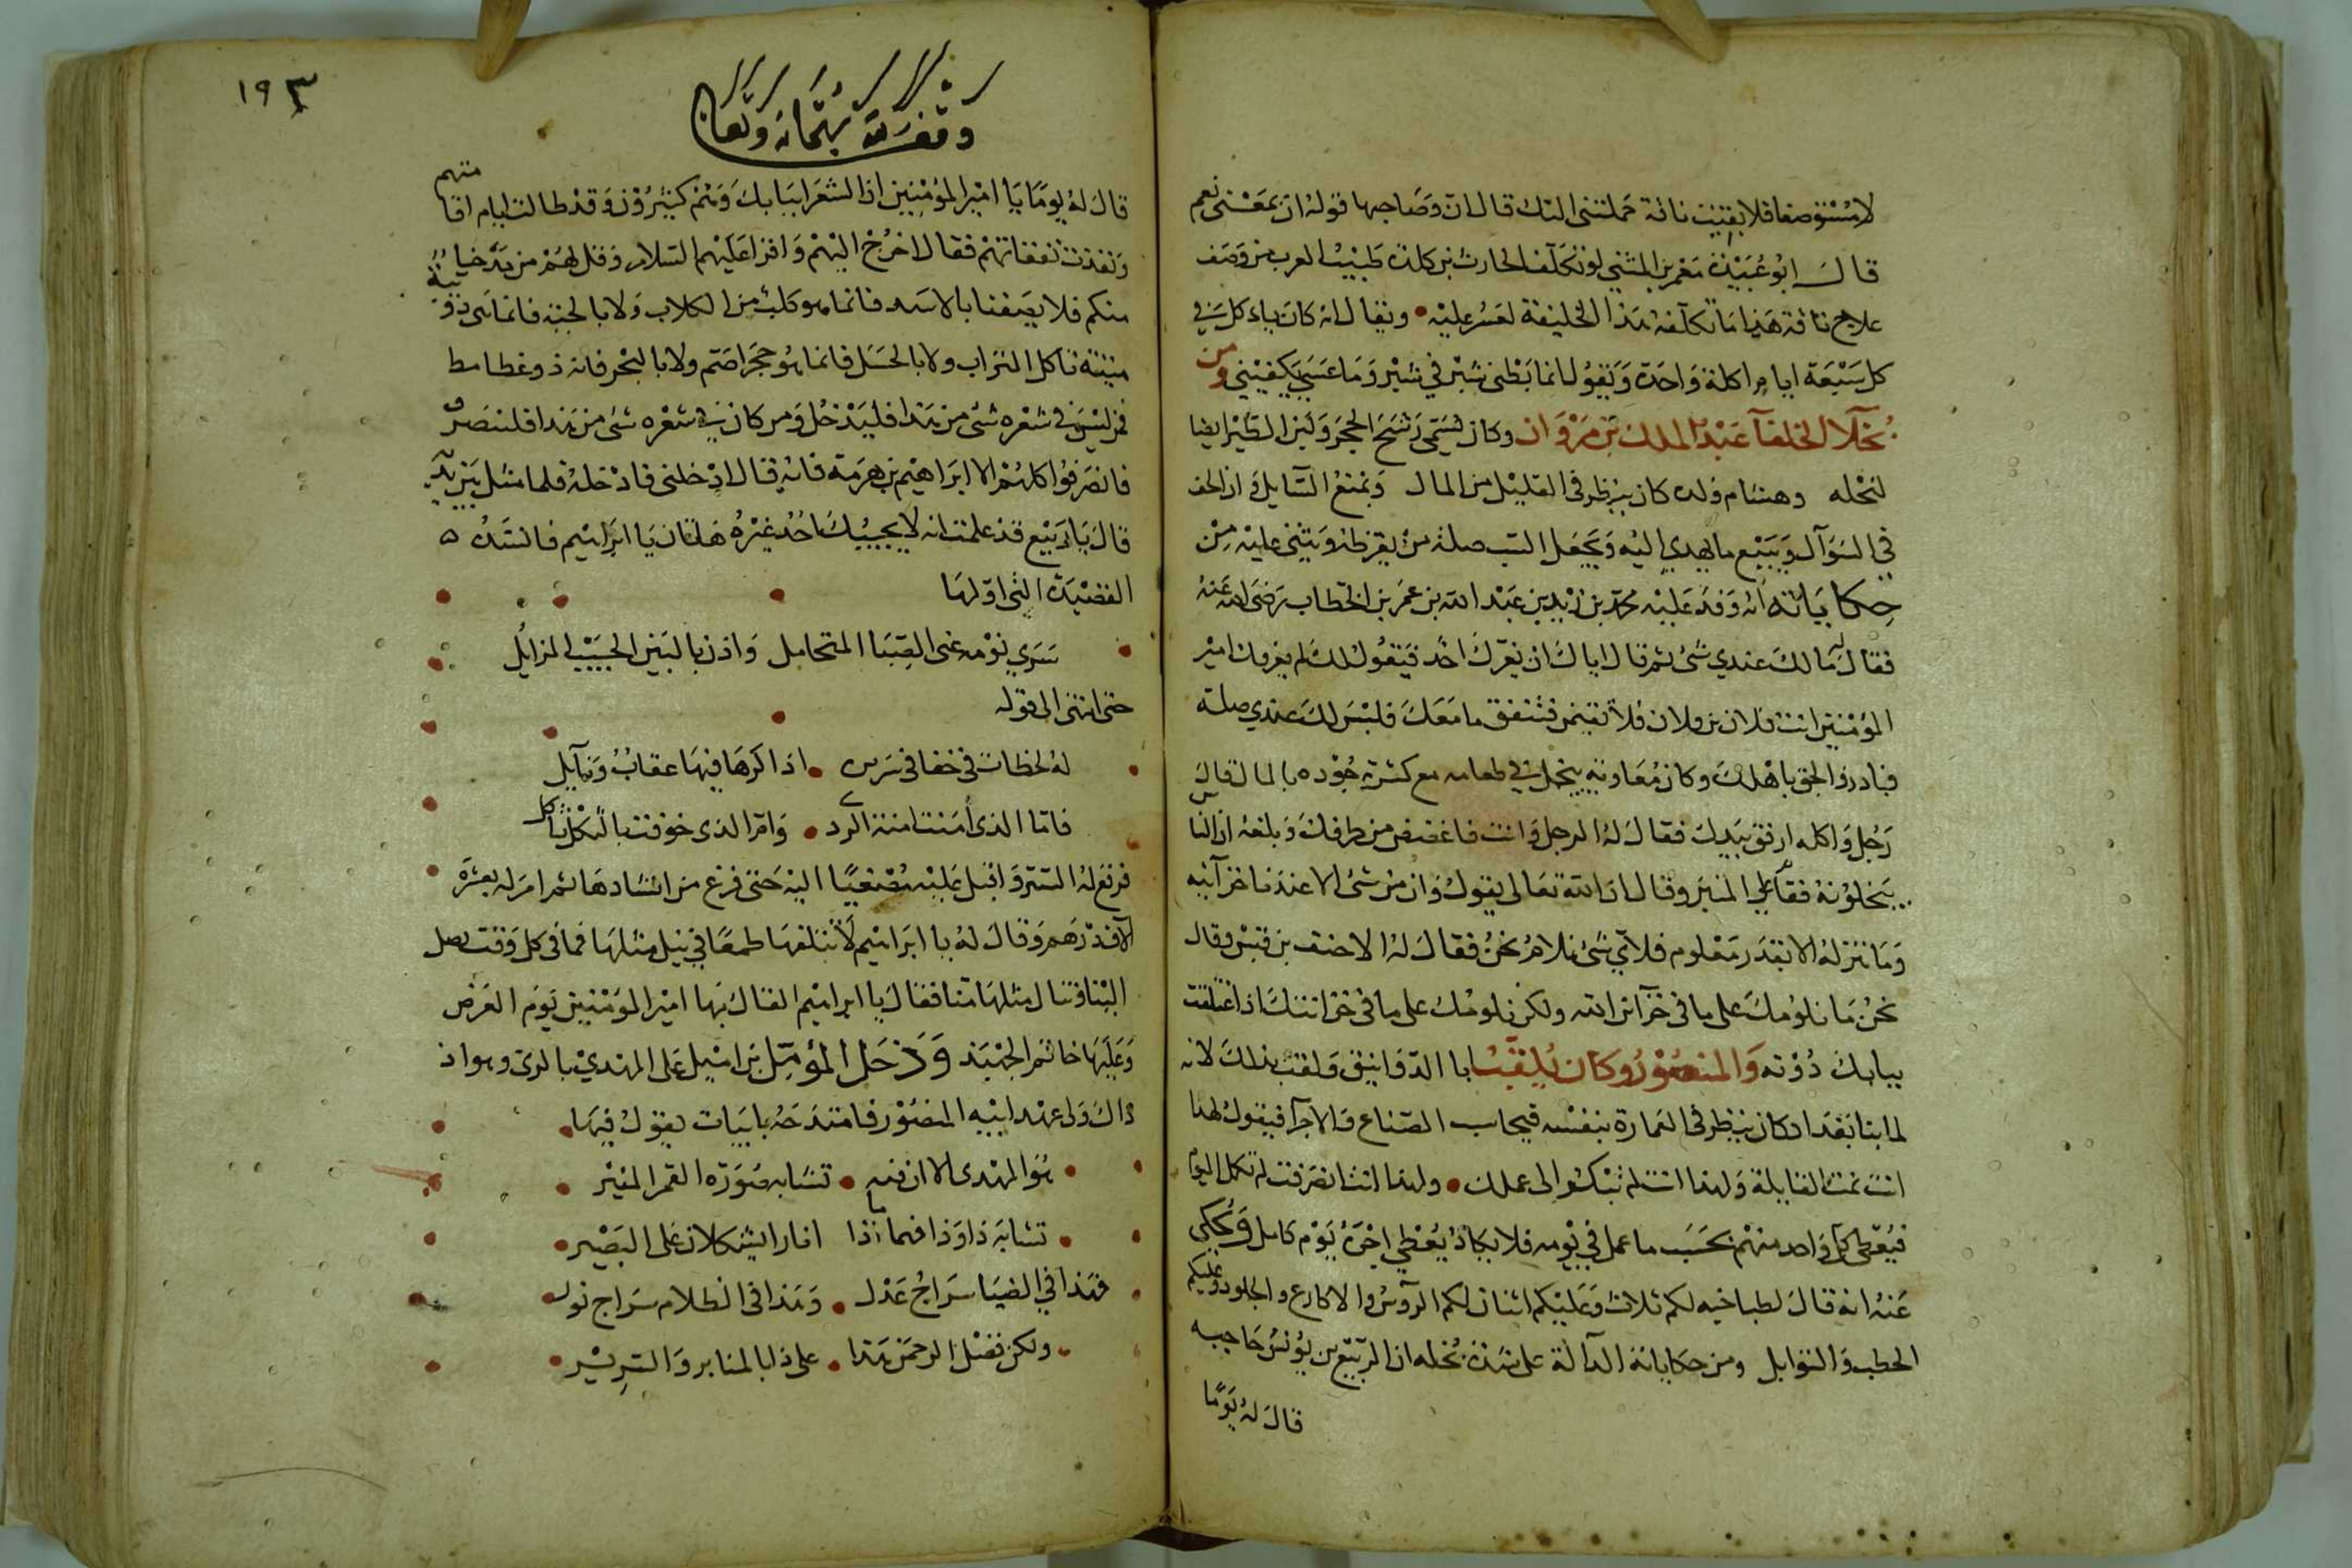 لا مستوصفا فلا بقيت ناقة حملتني اليك قال ان وصاحبها قوله ان بمعنى نعم
قال ابو عبيدة معمر بن المثنى لو تكلف الحارث بن كلدة طبيب العرب من وصف
علاج ناقة هذا ما تكلفه هذا الخليفة لعسر عليه • ويقال انه كان ياكل في
كل سبعة ايام اكلة واحدة ويقول انما بطني شبر في شبر وما عسى يكفيني ومن
بخلآ الخلفآ عبد الملك بن مروان وكان يسمى رشح الحجر ولبن الطير ايضا
لبخله وهشام ولده كان ينظر في القليل من المال ويمنع السايل وان الحف
في السؤآل ويبيع ما يهدي اليه ويجعل السب صلة من يقرظه ويثني عليه من
حكاياته انه وفد عليه محمد بن زيد بن عبد الله بن عمر بن الخطاب رضى الله عنه
فقال له مالك عندي شئ ثم قال اياك ان يغرك احد فيقول لك لم يعرفك امير
المؤمنين انت فلان بن فلان فلا تقيمن فتنفق ما معك فليس لك عندي صلة
فبادر والحق باهلك وكان معاوية يبخل في طعامه مع كثرة جوده بالمال قال
رجل واكله ارفق بيدك فقال له الرجل وانت فاغضض من طرفك وبلغه ان الناس
يبخلونه فقام على المنبر وقال ان الله تعالى يقول وان من شئ الا عندنا خزآئنه
وما ننزله الا بقدر معلوم فلاي شئ نلام نحن فقال له الاحنف بن قيس وقال
نحن ما نلومك على ما في خزآئن الله ولكن نلومك على ما في خزائنك اذا غلقت
بابك دونه والمنصور وكان يلقب ابا الدوانيق ولقب بذلك لانه
لما بنا بغداد كان ينظر في العمارة بنفسه فيحاسب الصناع والاجرآ فيقول لهذا
انت نمت القايلة ولهذا انت لم تبكر الى عملك • ولهذا انت انصرفت لم تكمل اليوم
فيعطى كل واحد منهم بحسب ما عمل في يومه فلا يكاد يعطي اجرة يوم كامل وحكى
عنه انه قال لطباخيه لكم ثلاث وعليكم اثنان لكم الرؤس والاكارع والجلود وعليكم
الحطب والتوابل ومن حكاياته الدآلة على شدة بخله ان الربيع بن يونس حاجبه
قال له يوما
١٩٣
قال له يوما يا امير المؤمنين ان الشعرا ببابك وهم كثيرون وقد طالت ايام اقامتهم
ونفدت نفقاتهم فقال اخرج اليهم واقرا عليهم السلام وقل لهم من مدحنا
منكم فلا يصفنا بالاسد فانما هو كلب من الكلاب ولا بالحية فانما هي دويبة
منتنة تاكل التراب ولا بالجبل فانما هو حجر اصم ولا بالبحر فانه ذو غطامط
فمن ليس في شعره شئ من هذا فليدخل ومن كان في شعره شئ من هذا فلينصرف
فانصرفوا كلهم الا ابراهيم بن هرمة فانه قال ادخلني فادخله فلما مثل بين يديه
قال يا ربيع قد علمت انه لا يجيبك احد غيره هات يا ابراهيم فانشده
القصيدة التي اولها
سرى نومه عنى الصبا المتحامل واذن بالبين الحبيب المزايل
حتى انتهى الى قوله
له لحظات في خفا في سريره • اذا كرها فيها عقاب ونآيل
فاما الذى امنت امنة الردى • واما الذى خوفت بالثكل ثاكل
فرفع له الستر واقبل عليه مصغيا اليه حتى فرغ من انشادها ثم امر له بعشرة
الآف درهم وقال له يا ابراهيم لا تتلفها طمعا في نيل مثلها فما في كل وقت تصل
الينا وتنال مثلها منا فقال يا ابراهيم القاك بها امير المؤمنين يوم العرض
وعليها خاتم الجهبذ ودخل المؤمل بن اميل على المهدي بالرى وهو اذ
ذاك ولى عهد ابيه المنصور فامتدحه بابيات يقول فيها
هو المهدى الا ان فيه • تشابه صورة القمر المنير
تشابه ذا وذا فهما اذا ما انارا يشكلان على البصير
فهذا في الضيا سراج عدل • وهذا في الظلام سراج نور
ولكن فضل الرحمن هذا • على ذا بالمنابر والسرير